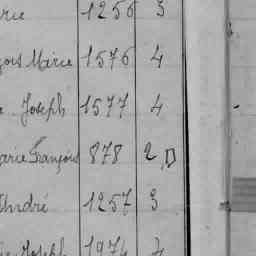 rie 1256 3
çois Marie 1576 4
Joseph 1577 4
arie François 878 2 D
André 1257 3
Joseph 1974 4